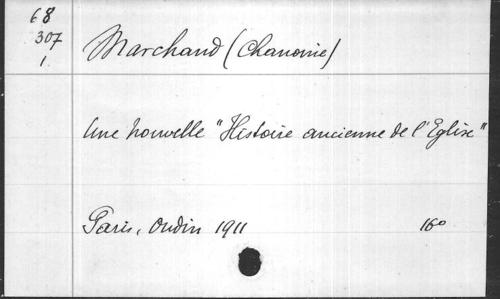 68
307
1.
Marchand (Chanoine)
Une nouvelle "Histoire ancienne de l'Eglise"
Paris, Oudin 1911 16°